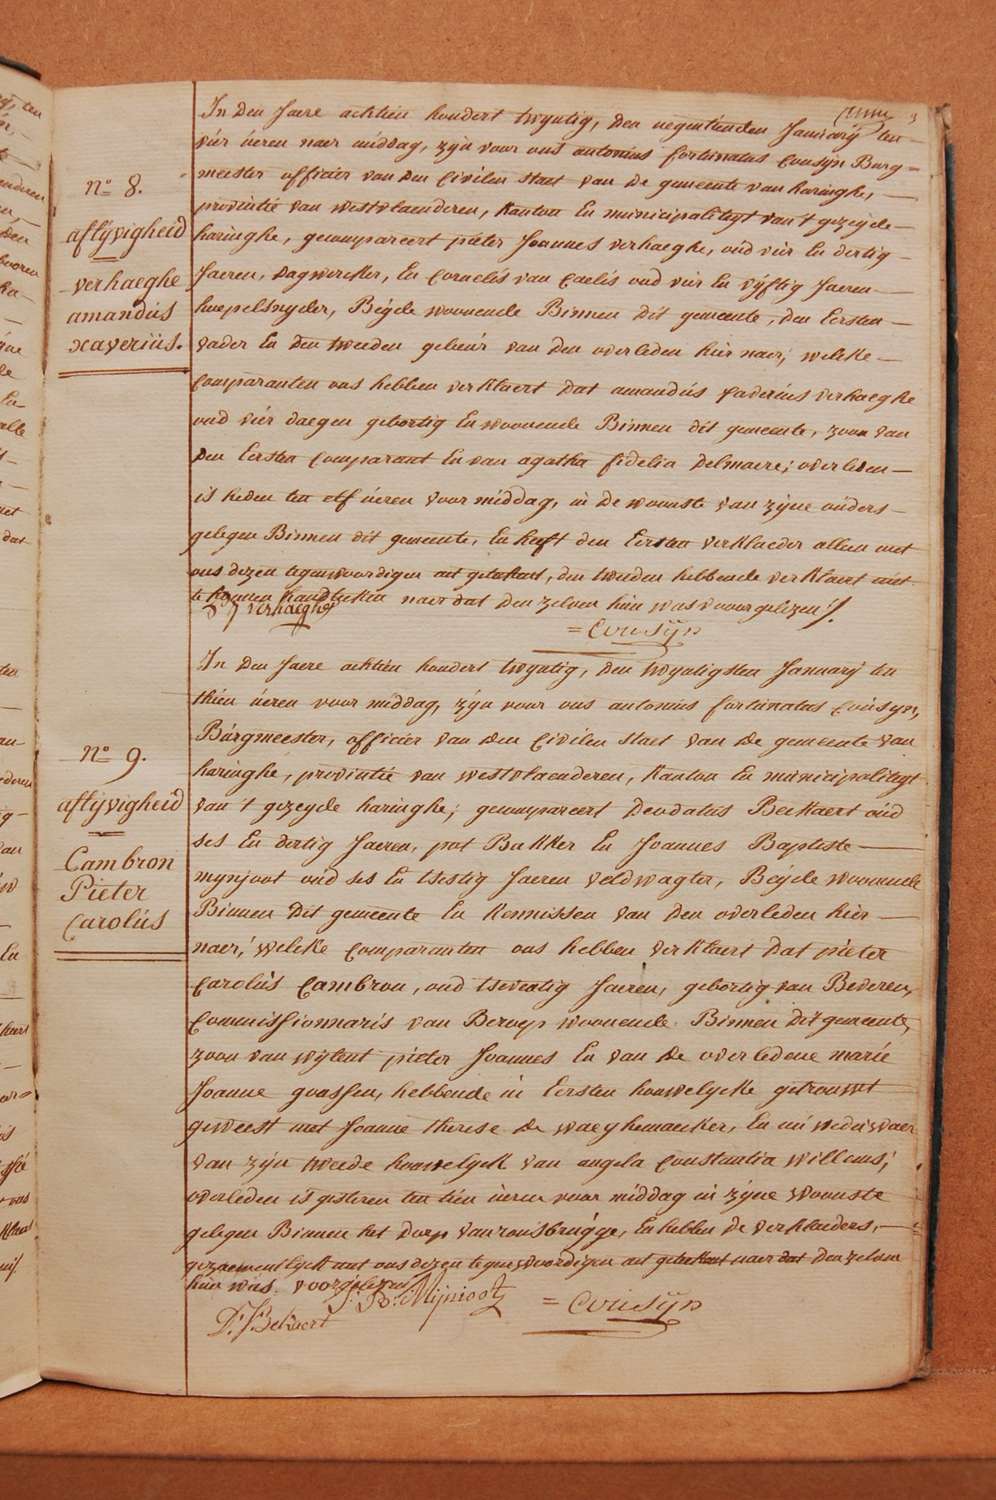 N.º 8.
aflijvigheid
verhaeghe
amandús
xaveriús.
In den Jaere achtien hondert twyntig, den negentienden Januarÿ ten
vier úeren naer middag, zijn voor ons antonius fortunatus Cousyn Burg=
meester officier van den Civilen staet van de gemeente van haringhe,
provintie van westvlaenderen, Kanton En municipaliteyt van 't gezeyde
haringhe, gecompareert pieter Joannes verhaeghe, oud vier En dertig
Jaeren, dagwercker, En Cornelis van Caelis oud vier En vijftig Jaeren
hoepelsnyder, Béyde woonende Binnen dit gemeente, den Eersten
vader En den tweeden gebeur van den overleden hier naer, welcke
Comparanten ons hebben verklaert dat amandús Xaveriús verhaeghe
oud vier daegen gebortig En woonende Binnen dit gemeente, zoon van
den Eersten Comparant En van agatha fidelia Delmaere; overleden
is heden ten elf úeren voor middag, in de woonste van zijne oúders
gelegen Binnen dit gemeente, En heeft den Eersten verklaeder alleen met
ons dezen tegenwoordigen act geteekent, den tweeden hebbende verklaert niet
te konnen handteeken naer dat den zelven hun was voorgelezen ./.
P J verhaeghe
= Cousÿn
N.º 9.
aflijvigheid
Cambron
Pieter
Carolús
In den Jaere achtien hondert twyntig, den twyntigsten Januarÿ ten
thien úeren voor middag, zijn voor ons antonius fortunatus Cousyn,
Búrgmeester, officier van den Civilen staet van de gemeente van
haringhe, provintie van westvlaenderen, Kanton En municipaliteyt
van 't gezeyde haringhe; gecompareert Deodatus Beckaert oúd
ses En dertig Jaeren, pot Bakker En Joannes Baptiste
mynjoot oud ses En tsestig Jaeren veldwagter, Béyde woonende
Binnen dit gemeente En Kennissen van den overleden hier
naer, welcke Comparanten ons hebben verklaert dat pieter
Carolús Cambron, oud tseventig Jaeren, gebortig van Beveren,
Commissionnaris van Beroep woonende Binnen dit gemeente,
zoon van wylent pieter Joannes En van de overledene marie
Joanne goossen, hebbende in Eersten houwelycke getrouwt
geweest met Joanne therese de waeghemaecker, En nu wedúwaer
van zijn tweede houwelyck van angela Constantia willems;
overleden is gisteren ten tien úeren voor middag in zijne woonste
gelegen Binnen het dorp van rousbrúgge, En hebben de verklaeders,
gezaementlijck met ons dezen tegenwoordigen act geteekent naer dat den zelven
hun was voorgelezen
J: B: Mijnioot
= Cousÿn
D: F: Bekaert